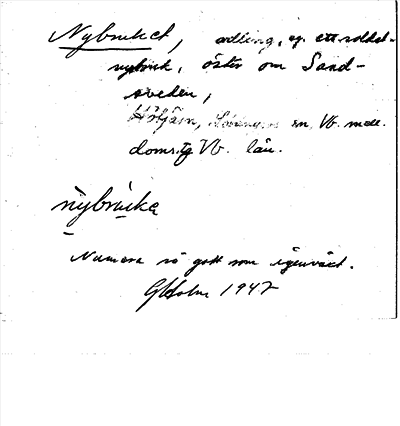 Nybruket, odling, eg. ett soldat-
nybruk, öster om Sand-
sveden,
Hötjärn, Lövångers sn, Vb. mell.
doms.tg Vb. län.
nybruka
Numera så gott som igenväxt.
GHolm 1947